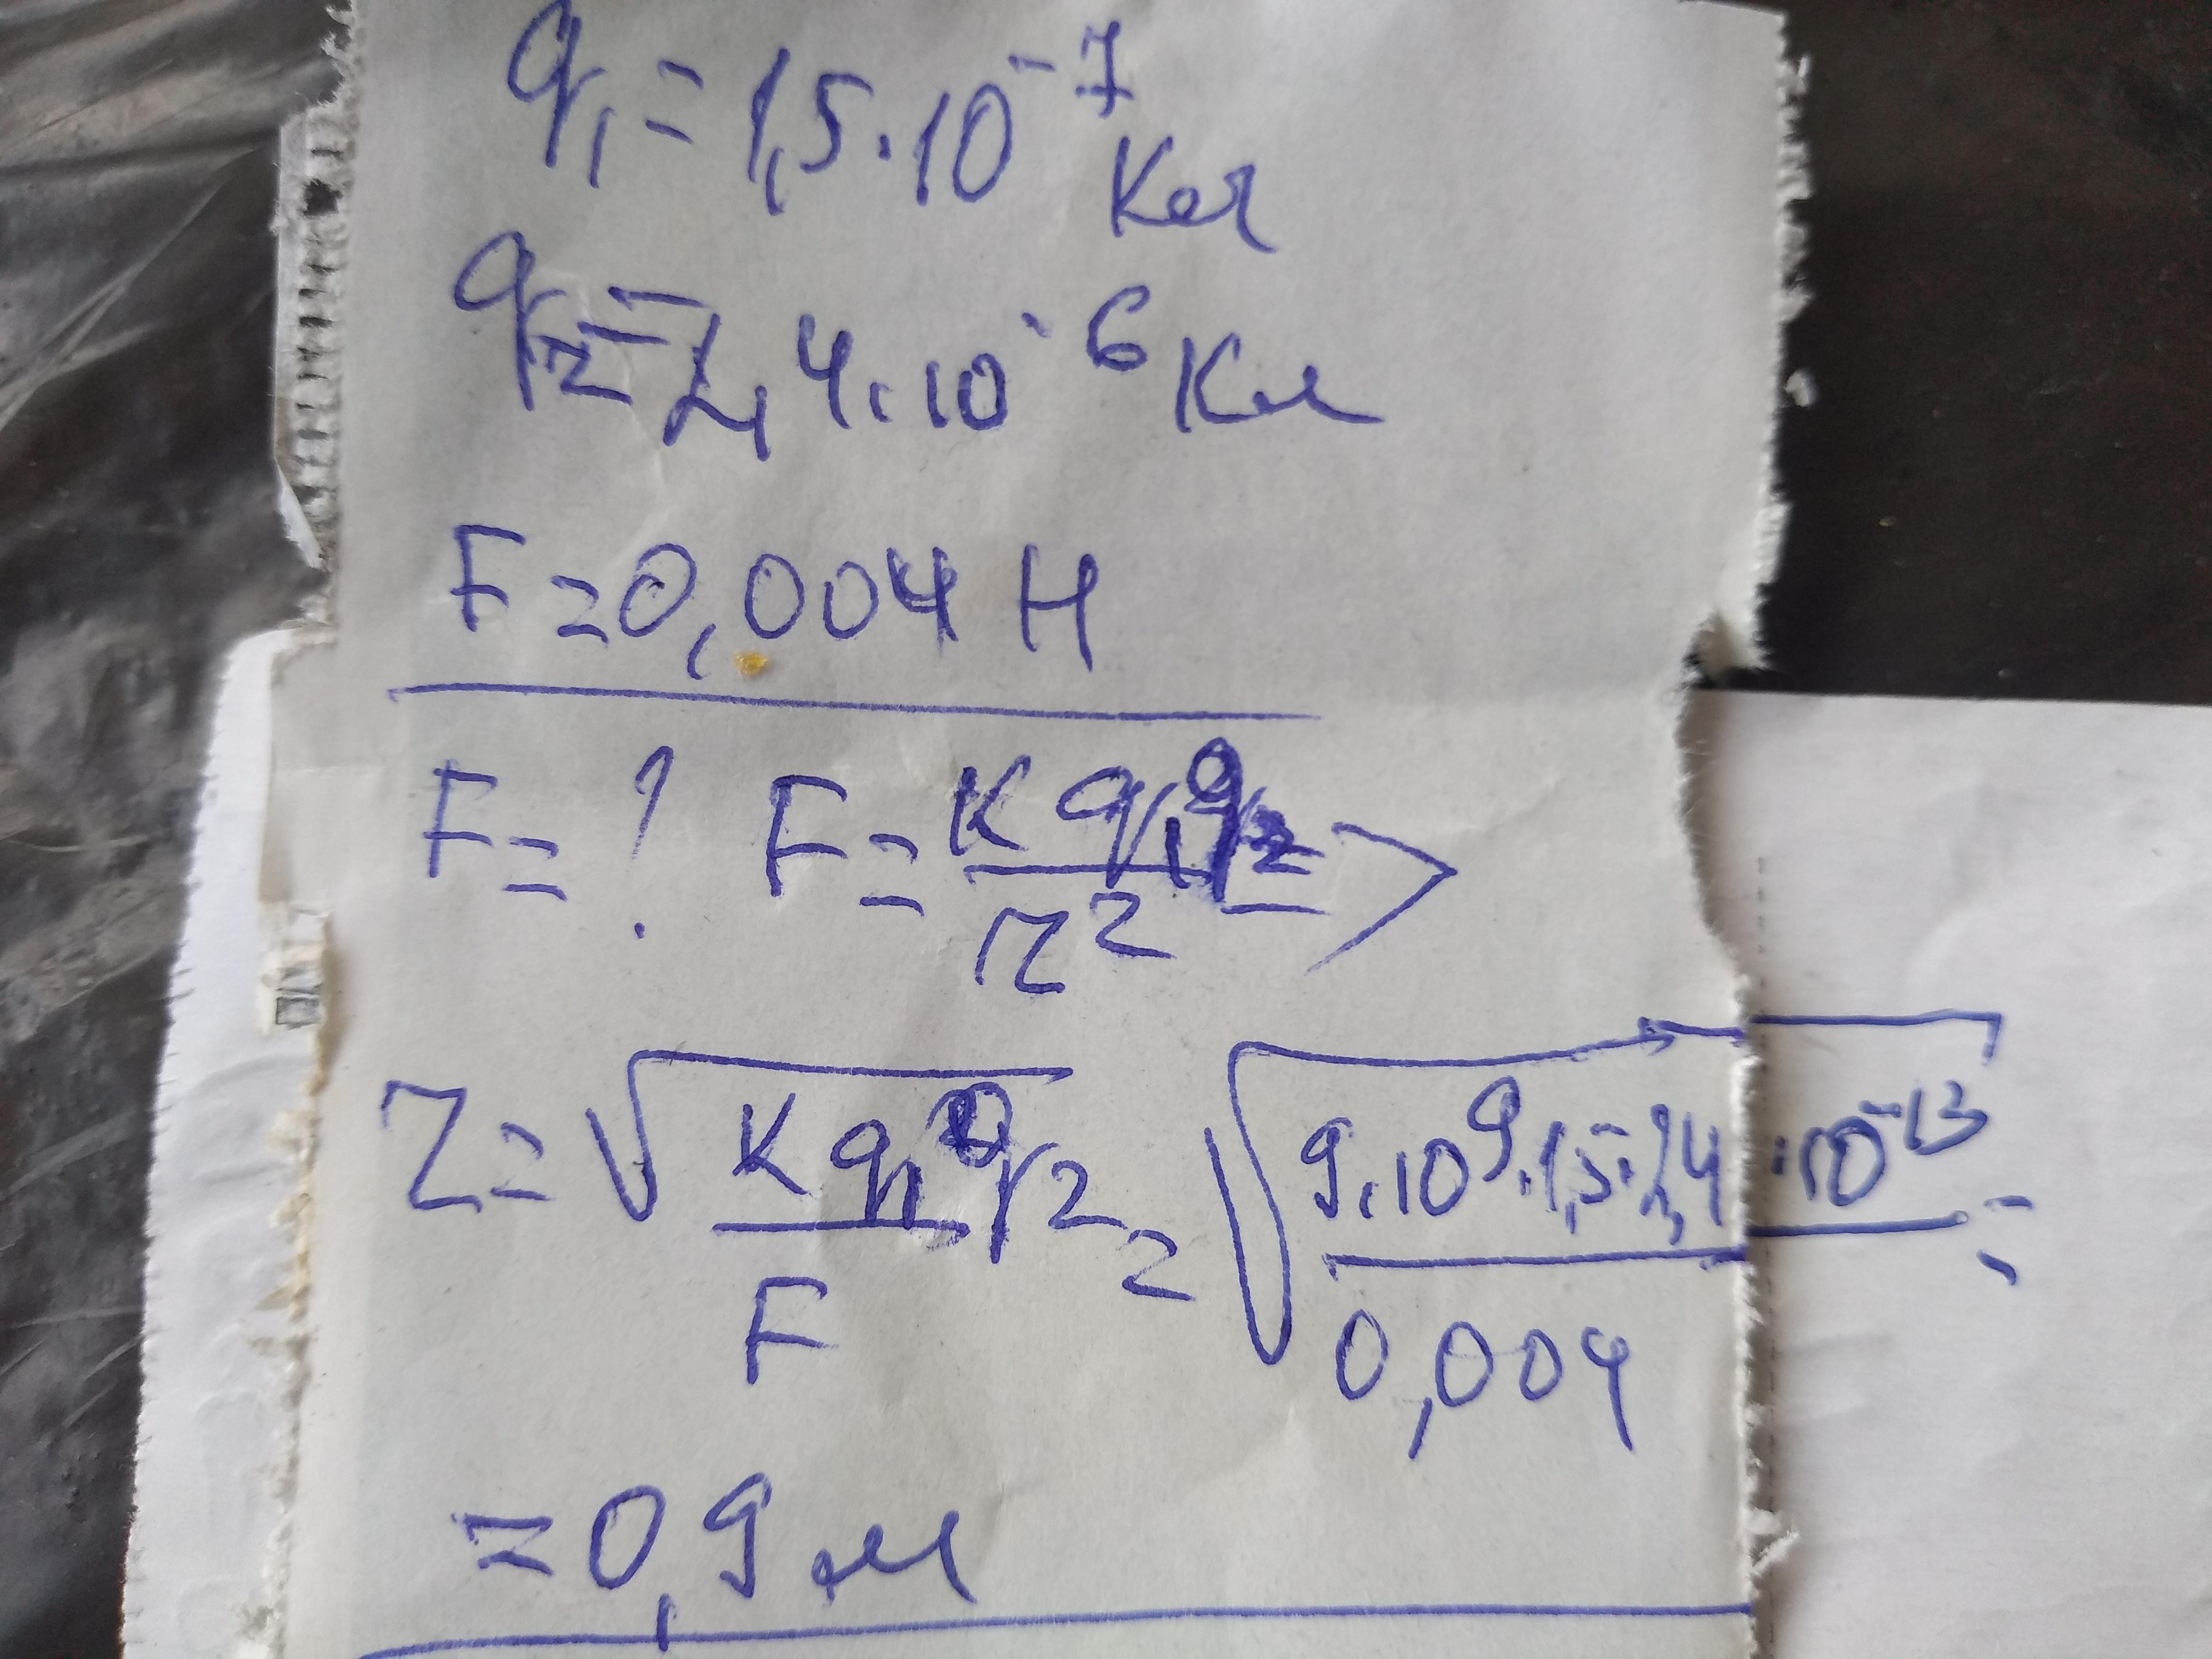 q₁ = 1,5·10⁻⁷ Кл
q₂ = 2,4·10⁻⁶ Кл
F = 0,004 Н
F = ? F = K q₁ q₂ / r² =>
r = √(K q₁ q₂ / F) = √(9·10⁹·1,5·2,4·10⁻¹³ / 0,004) =
= 0,9 м